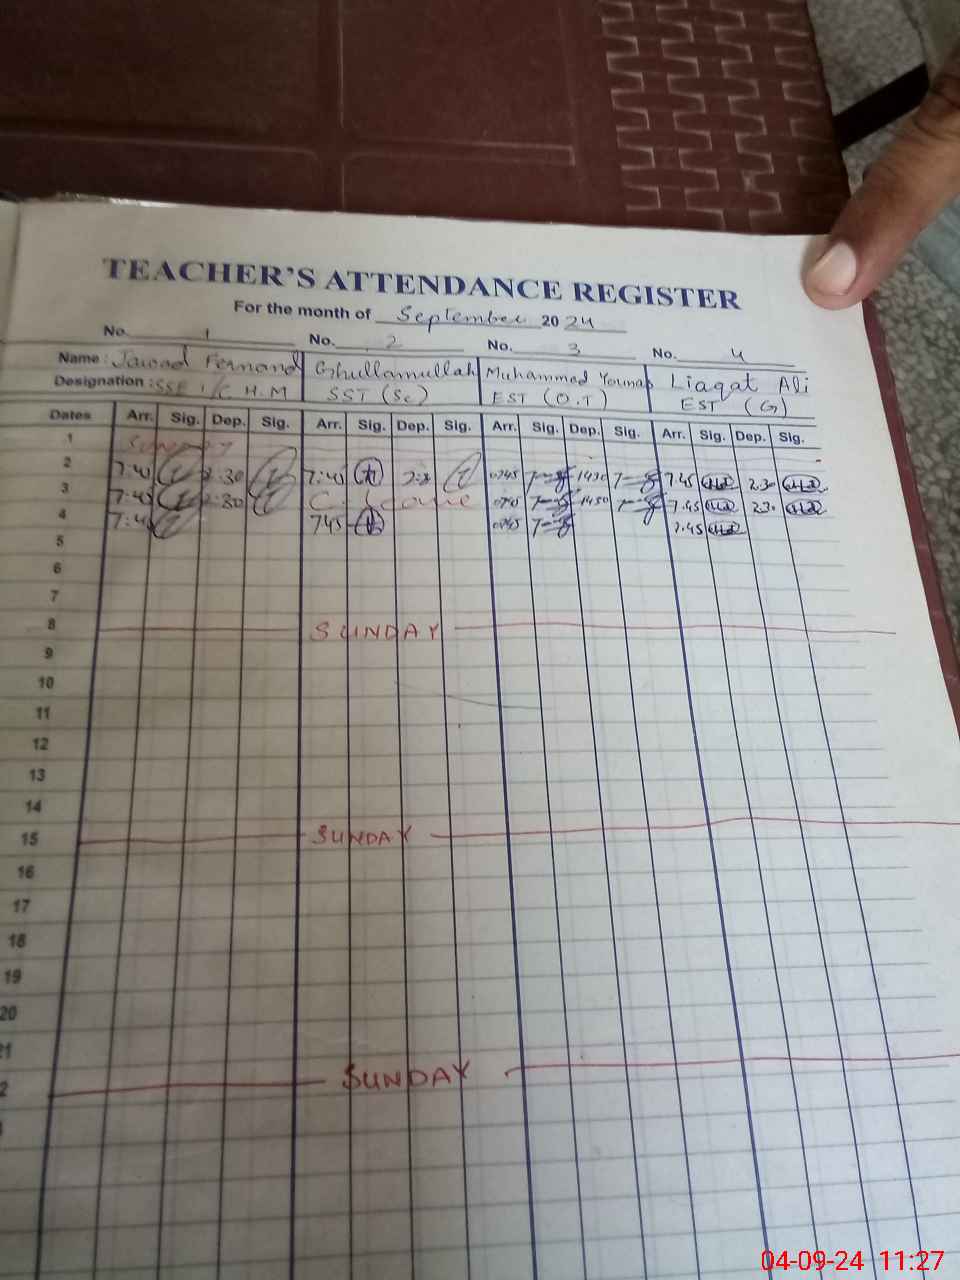 TEACHER'S ATTENDANCE REGISTER
For the month of September 2024
No. 1 No. 2 No. 3 No. 4
Name: Jawad Fernand Ghullamullah Muhammed Younas Liaqat Ali
Designation: SSE I/C H.M SST (Sc) EST (O.T) EST (G)
Dates Arr. Sig. Dep. Sig. Arr. Sig. Dep. Sig. Arr. Sig. Dep. Sig. Arr. Sig. Dep. Sig.
1 SUNDAY
2 7:40 2:30 7:40 0745 1430 7.45 2.30
3 7:40 2:30 C. leave 0745 1430 7.45 2.30
4 7:40 745 0745 7.45
5
6
7
8 SUNDAY
9
10
11
12
13
14
15 SUNDAY
16
17
18
19
20
21
2 SUNDAY
04-09-24 11:27